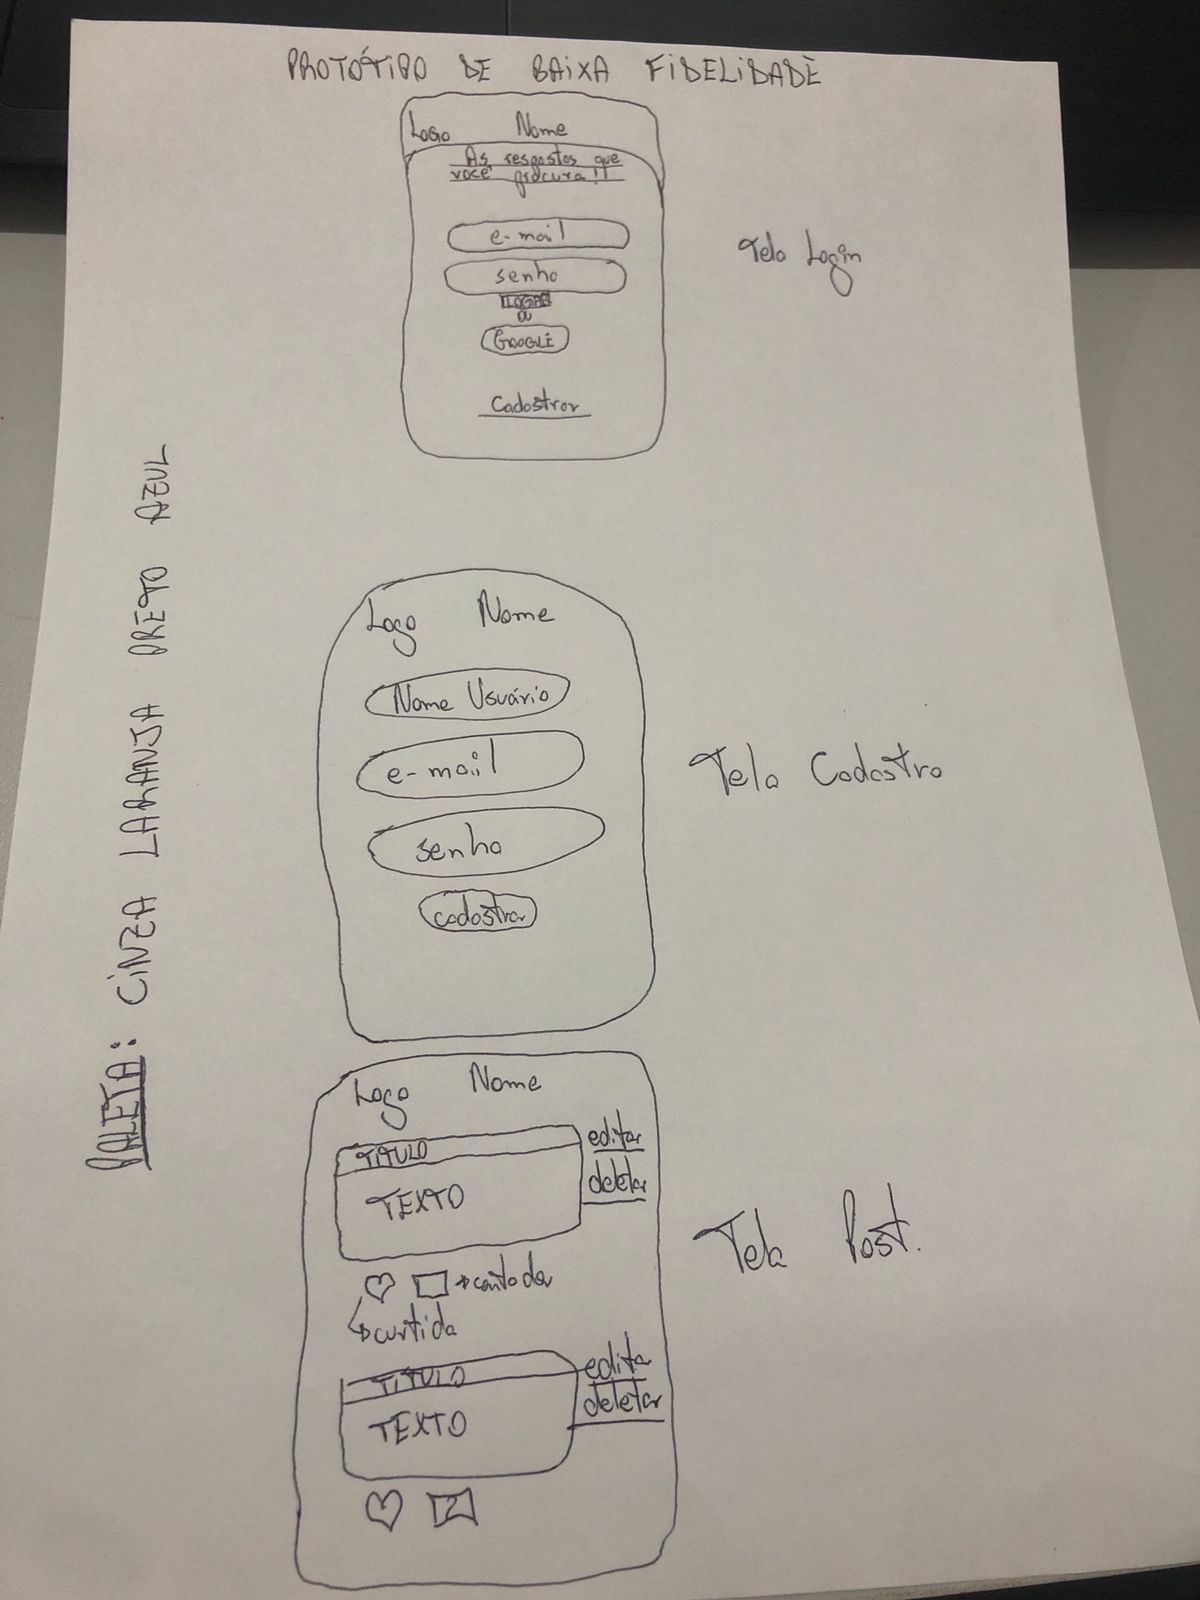 PROTÓTIPO DE BAIXA FIDELIDADE
Logo Nome
As respostas que
você procura!!
e-mail
senha
LOGAR
OU
GOOGLE
Cadastrar
Tela Login
PALETA: CINZA LARANJA PRETO AZUL
Logo Nome
Nome Usuário
e-mail
senha
cadastrar
Tela Cadastro
Logo Nome
TITULO
TEXTO
editar
deletar
contador
curtida
Tela Post.
TITULO
TEXTO
edita
deletar
2